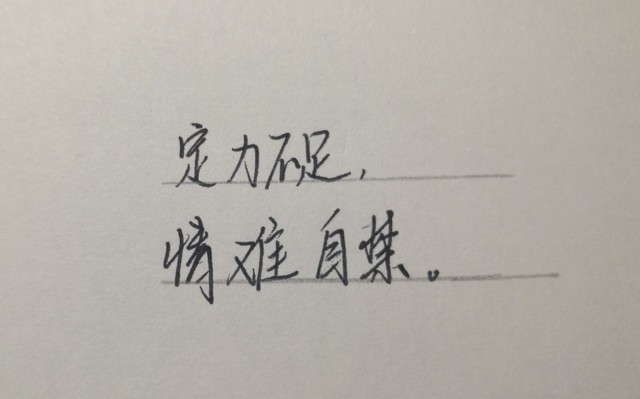 定力不足，
情难自禁。